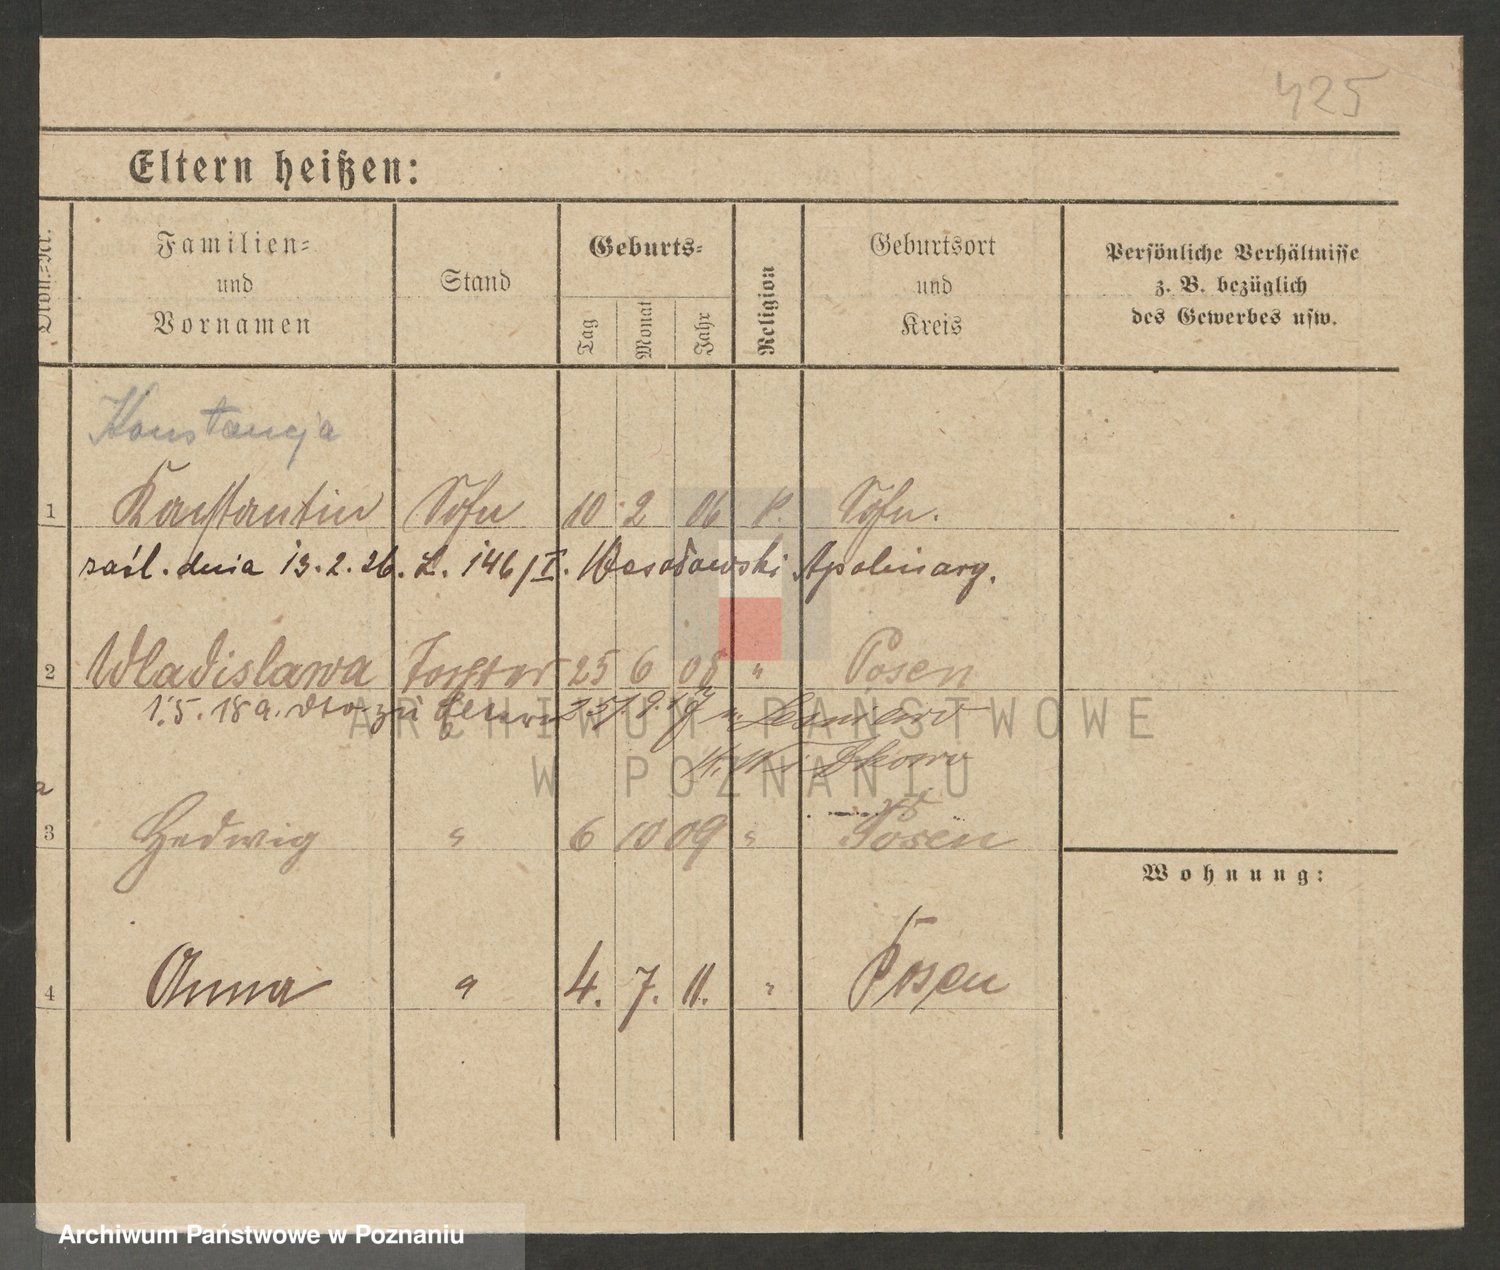 425
Eltern heißen:
Ordn.=Nr.
Familien=
und
Vornamen
Stand
Geburts=
Tag
Monat
Jahr
Religion
Geburtsort
und
Kreis
Persönliche Verhältnisse
z. B. bezüglich
des Gewerbes usw.
Konstancja
1 Konstantin 10 2 06 k.
zaśl. dnia 13.2.26. L. 146/I. Wesołowski Apolinary.
2 Wladislawa Tochter 25 6 08 " Posen
1.5.18 a. zu
3 Hedwig " 6 10 09 " Posen
Wohnung:
4 Anna " 4. 7. 11. " Posen
ARCHIWUM PAŃSTWOWE
W POZNANIU
Archiwum Państwowe w Poznaniu